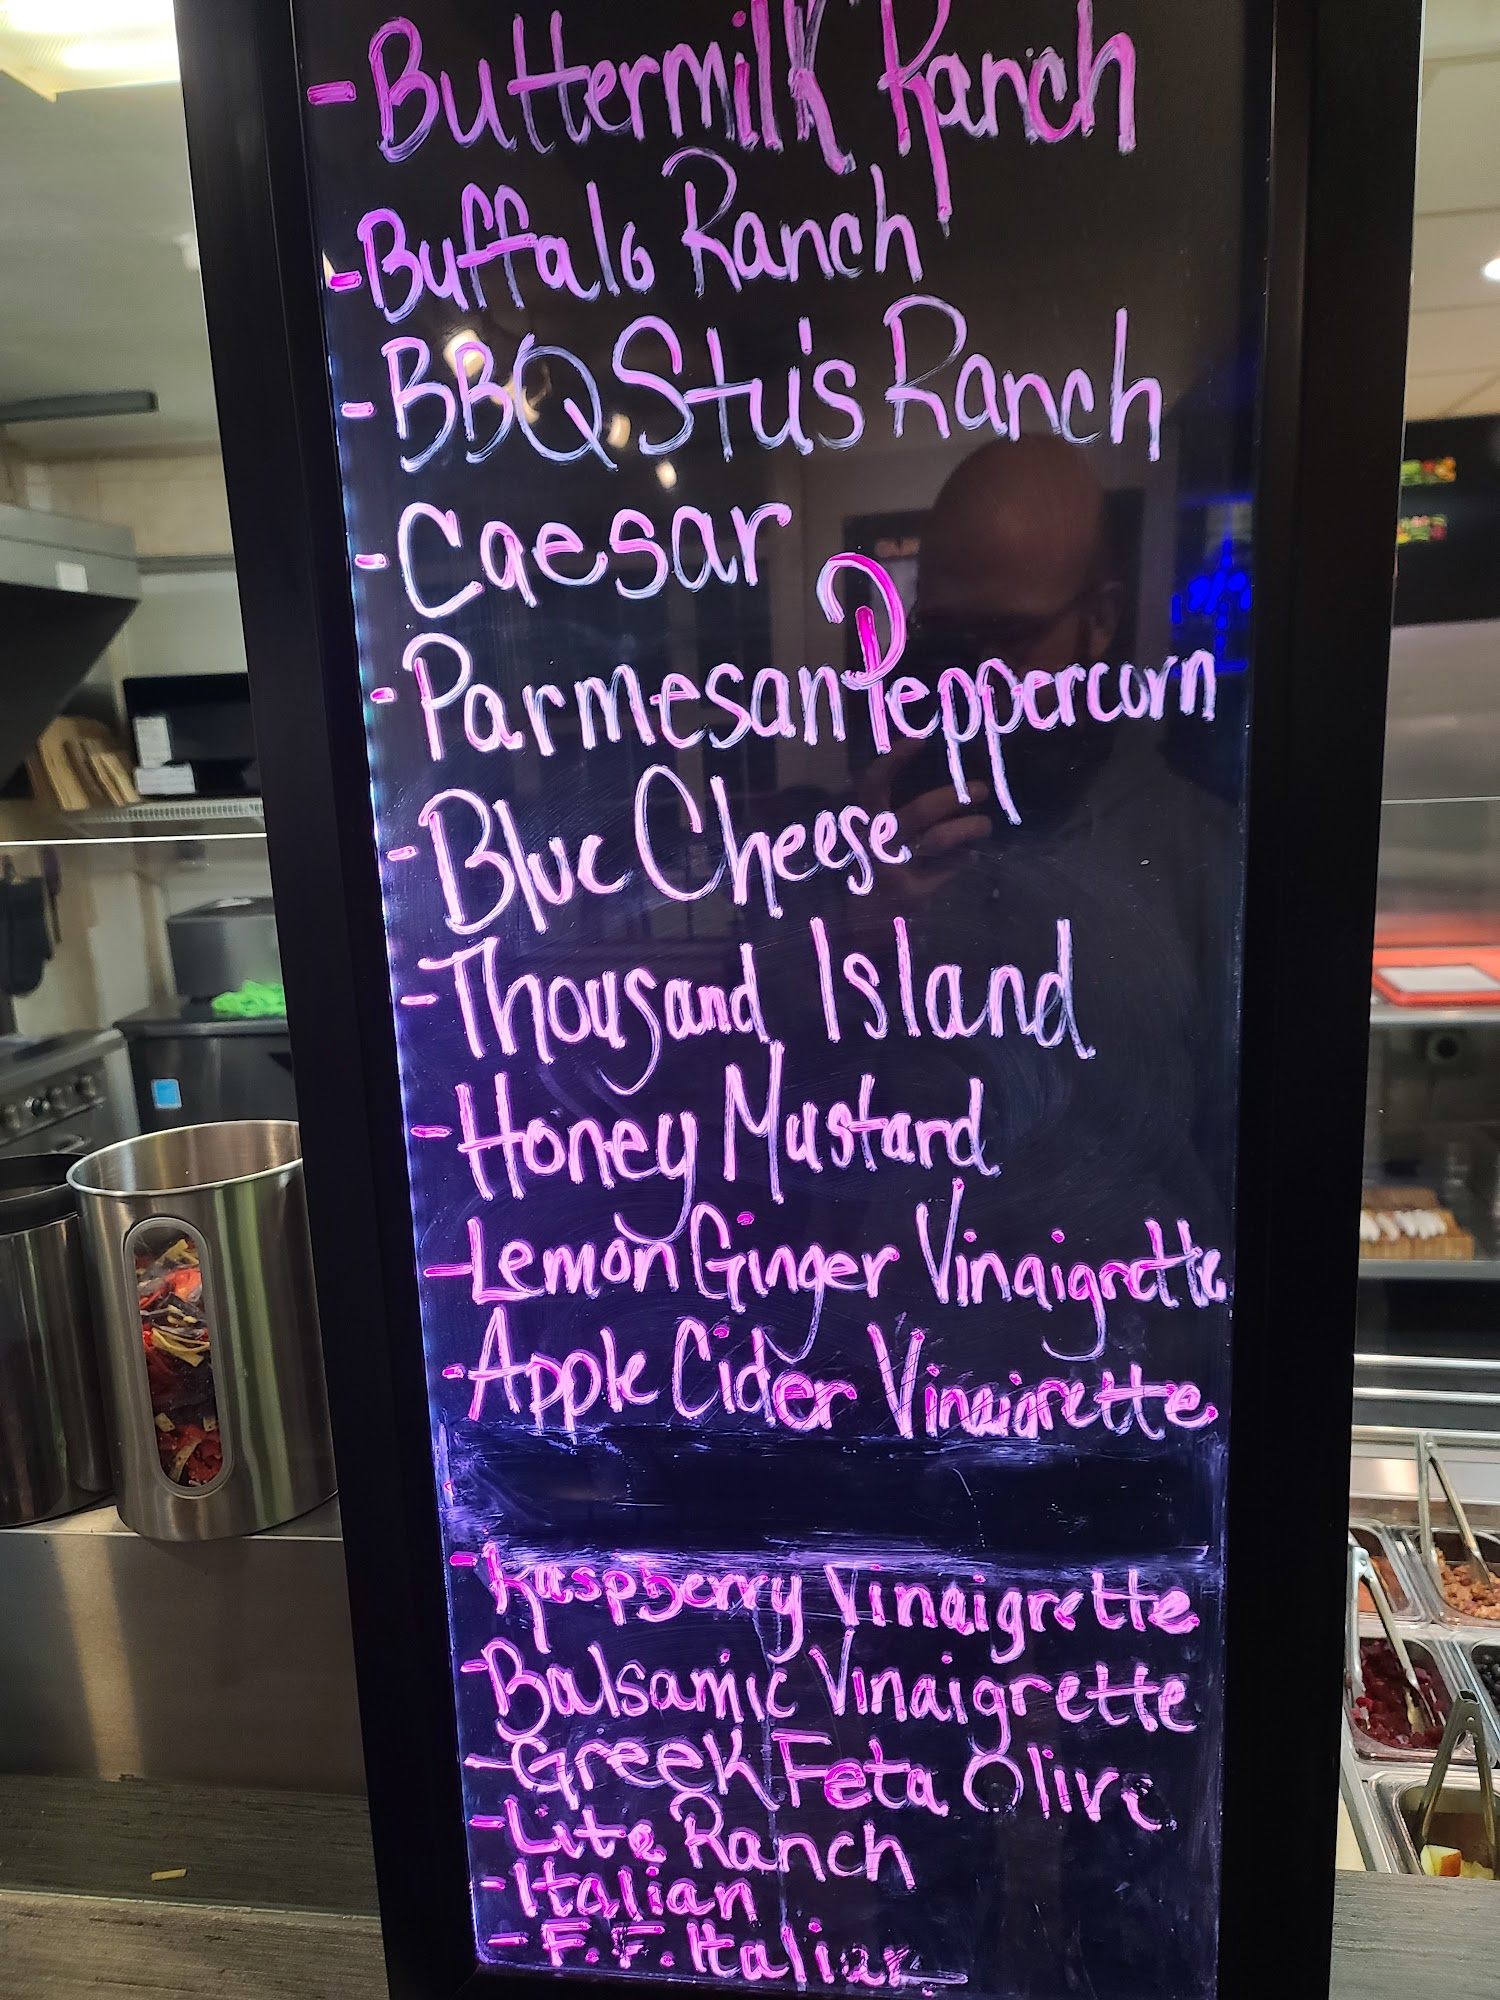 - Buttermilk Ranch
- Buffalo Ranch
- BBQ Stu's Ranch
- Caesar
- Parmesan Peppercorn
- Blue Cheese
- Thousand Island
- Honey Mustard
- Lemon Ginger Vinaigrette
- Apple Cider Vinaigrette
- Raspberry Vinaigrette
- Balsamic Vinaigrette
- Greek Feta Olive
- Lite Ranch
- Italian
- F.F. Italian